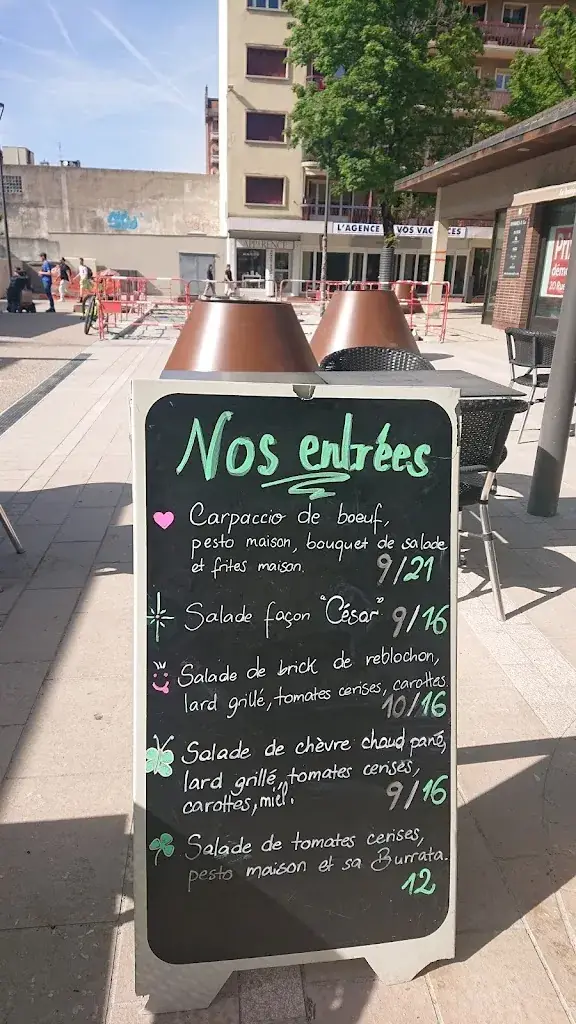 L'AGENCE VOS VACANCES
APPARENCE
Nos entrées
Carpaccio de boeuf,
pesto maison, bouquet de salade
et frites maison.
9/21
Salade façon "César" 9/16
Salade de brick de reblochon,
lard grillé, tomates cerises, carottes.
10/16
Salade de chèvre chaud pané,
lard grillé, tomates cerises,
carottes, miel.
9/16
Salade de tomates cerises,
pesto maison et sa Burrata.
12